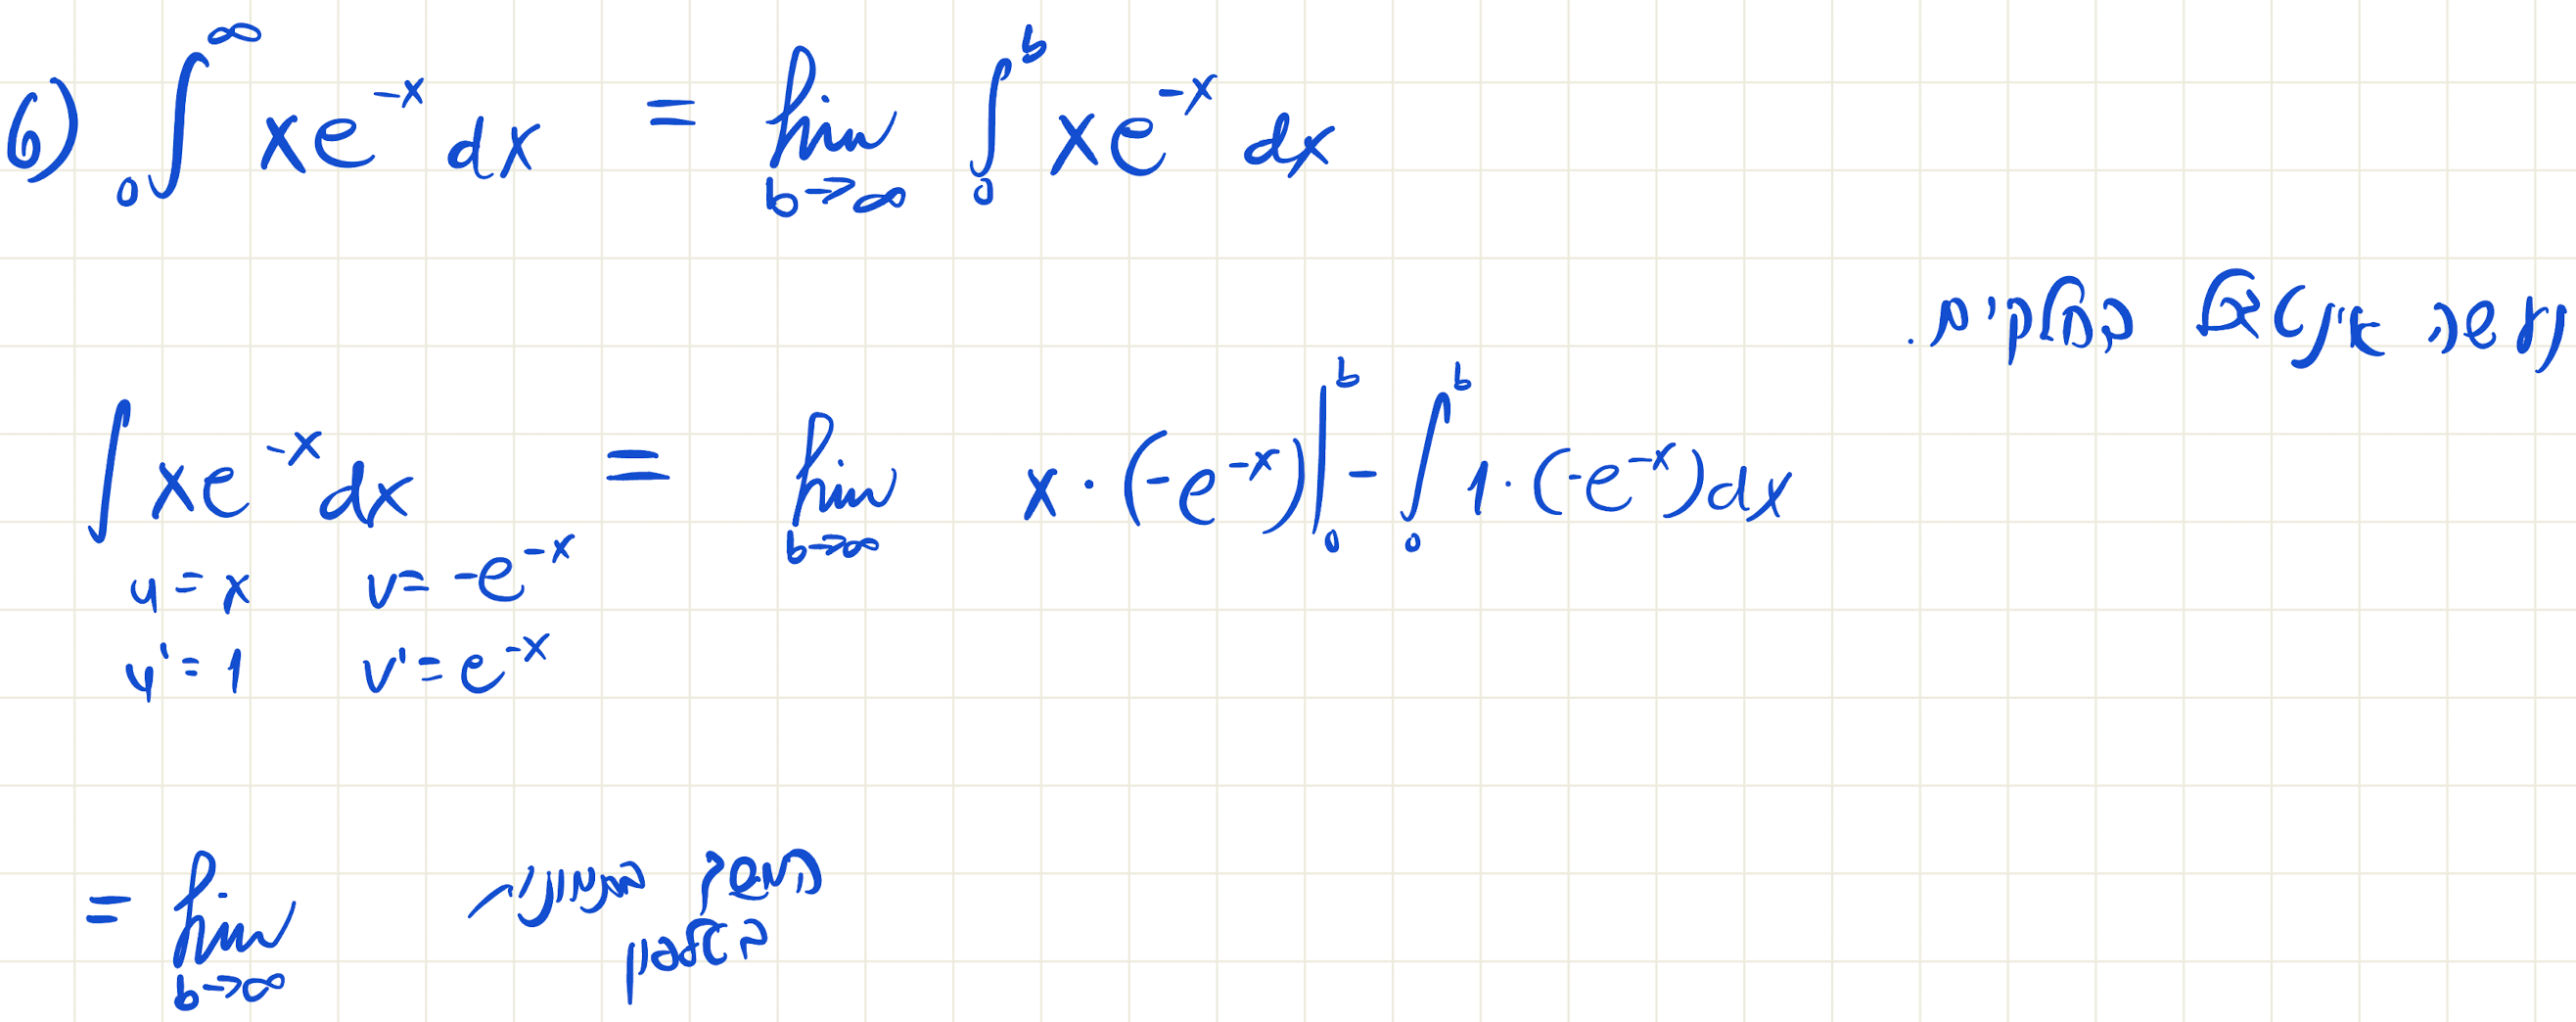 6) ∫₀^∞ xe^{-x} dx = lim_{b→∞} ∫₀^b xe^{-x} dx
נעשה אינטגרל בחלקים.
∫ xe^{-x} dx = lim_{b→∞} x·(-e^{-x})|₀^b - ∫₀^b 1·(-e^{-x})dx
u = x v = -e^{-x}
u' = 1 v' = e^{-x}
= lim_{b→∞} המשך